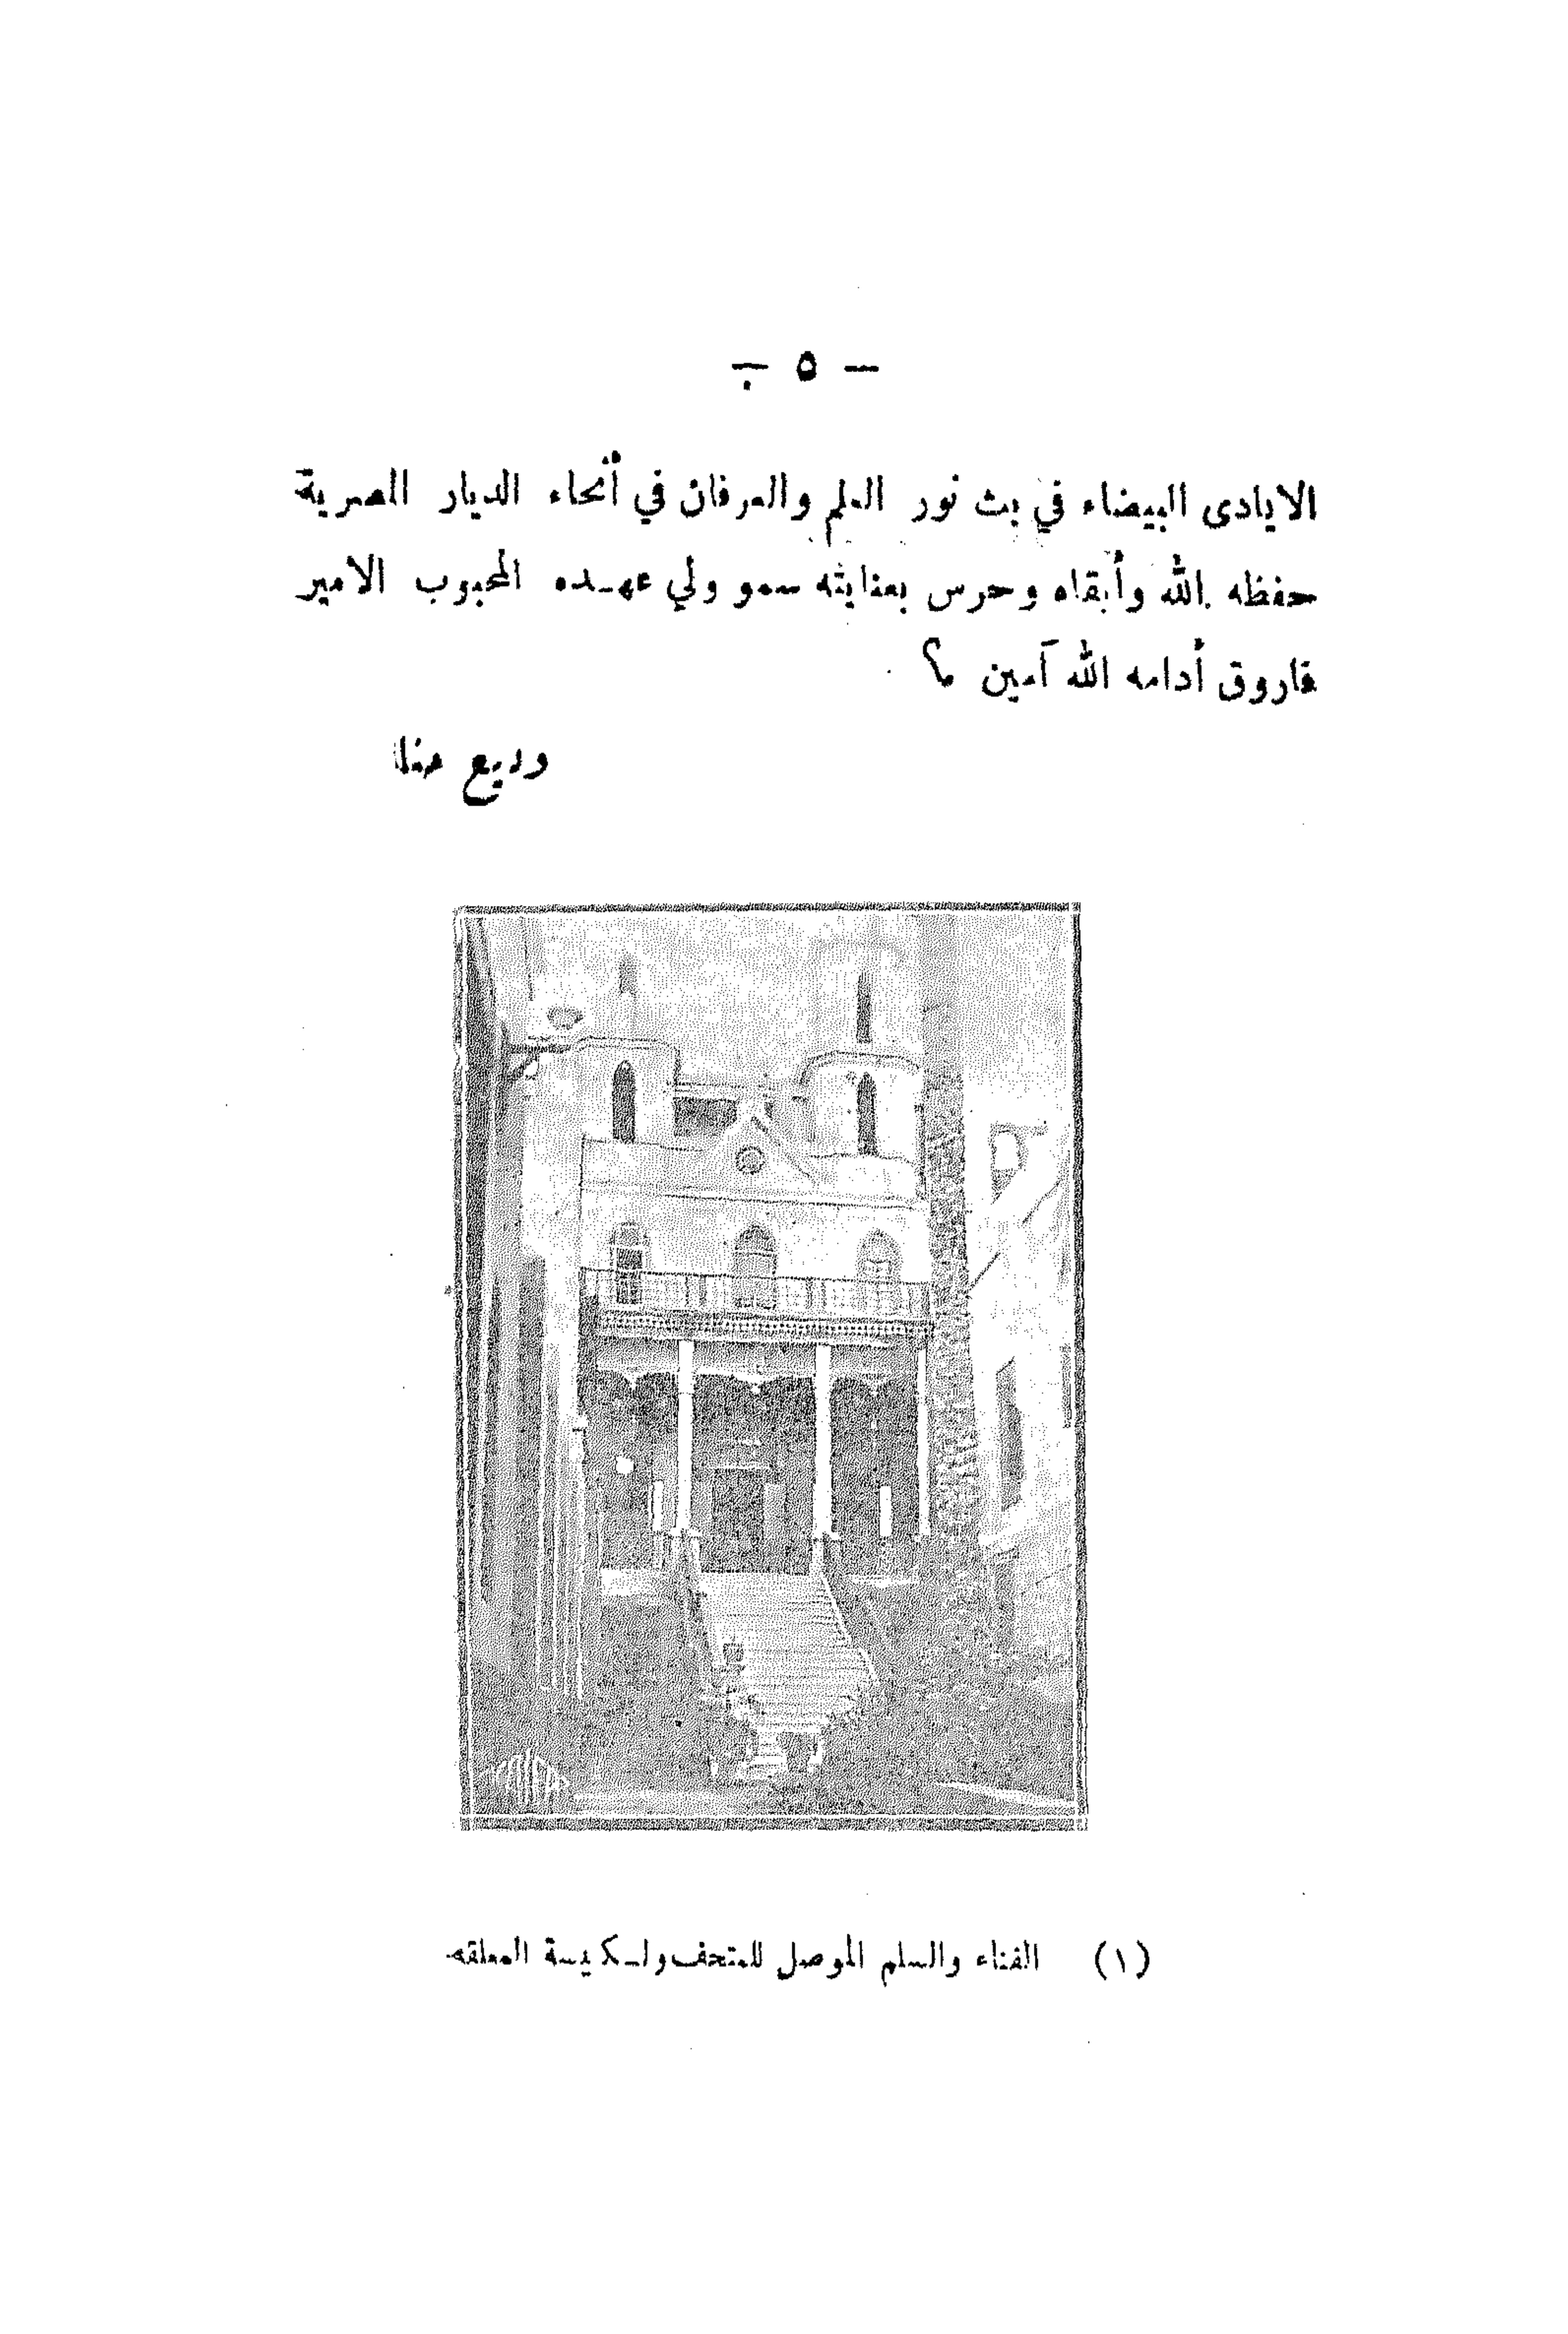 — ٥ —
الايادى البيضاء في بث نور العلم والعرفان في أنحاء الديار المصرية
حفظه الله وأبقاه وحرس بعنايته سمو ولي عهـده المحبوب الامير
فاروق أدامه الله آمين ؟
وديع حنا
(١) الفناء والسلم الموصل للمتحف والـكنيسة المعلقه